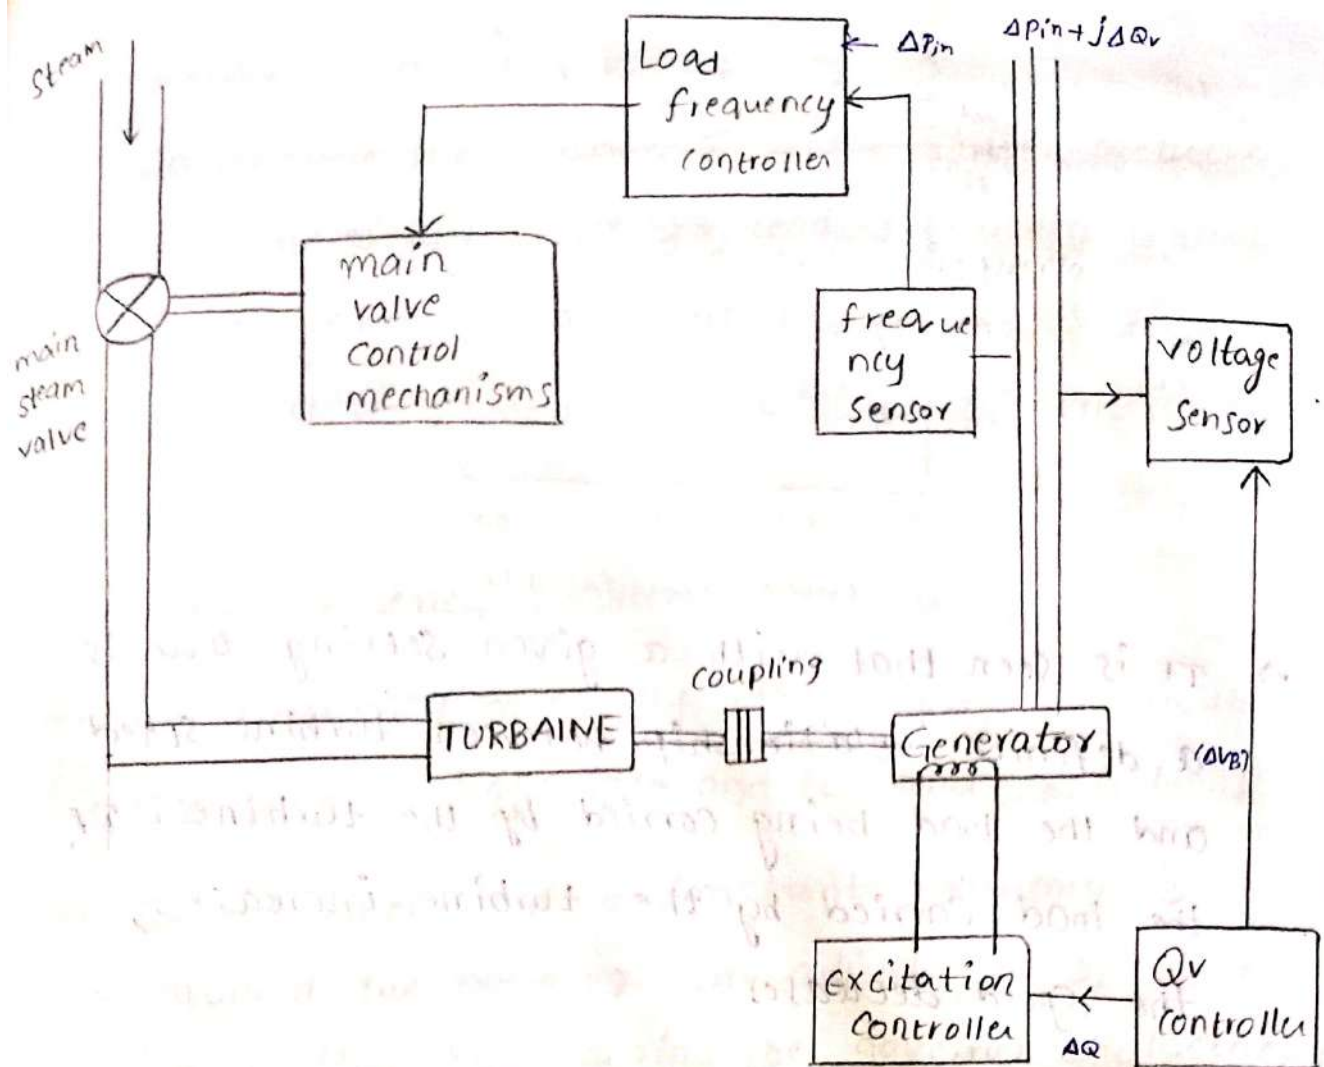 steam
Load
frequency
controller
ΔPin
ΔPin + jΔQv
main
valve
control
mechanisms
main
steam
valve
freque
ncy
sensor
voltage
sensor
coupling
TURBAINE
Generator
(ΔVB)
Excitation
controller
ΔQ
Qv
controller